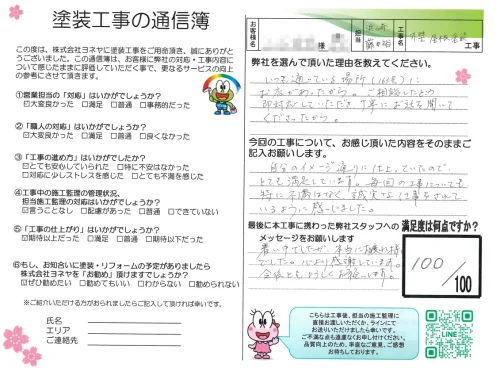 塗装工事の通信簿
この度は、株式会社ヨネヤに塗装工事をご用命頂き、誠にありがと
うございました。この通信簿は、お客様に弊社の対応・工事内容に
ついて感じたままに評価していただく事で、更なるサービスの向上
の参考にさせて頂きます。
①営業担当の「対応」はいかがでしょうか?
☑大変良かった □満足 □普通 □事務的だった
②「職人の対応」はいかがでしょうか?
☑大変良かった □満足 □普通 □良くなかった
③「工事の進め方」はいかがでしたか?
☑とても安心していられた □特に不満はなかった
□対応に少しストレスを感じた □とても不満を感じた
④工事中の施工監理の管理状況、
担当施工監理の対応はいかがでしたか?
☑言うことなし □配慮があった □普通 □できていない
⑤「工事の仕上がり」はいかがでしょうか?
☑期待以上だった □満足 □普通 □期待以下だった
⑥もし、お知合いに塗装・リフォームの予定がありましたら
株式会社ヨネヤを「お勧め」頂けますでしょうか?
☑ぜひ勧めたい □勧めてもいい □わからない □勧められない
※ご紹介いただける方がおられましたらご記入して頂ければ幸いです。
氏名
エリア
ご連絡先
お客様名 様 担当 工事名 外壁 屋根塗装 工事
弊社を選んで頂いた理由を教えてください。
いつも通っている場所(168号)に
お店がありましたから。ご相談したら
即対応していただき 丁寧にお話を聞いて
くださったから。
今回の工事について、お感じ頂いた内容をそのままご
記入お願いします。
自分のイメージ通りに仕上っていたので
とても満足しています。毎回の工事についても
特に不満はなく 誠実な仕事をされて
いるように感じました。
最後に本工事に携わった弊社スタッフへの
メッセージをお願いします
暑い中でしたが、本当に
でした。心より感謝しています。
今後ともよろしくお願いします。
満足度は何点ですか?
100/100
こちらは工事後、担当の施工監理に
直接お渡しいただくか、ラインにて
お送りいただけましたら幸いです。
ご不満な点も遠慮なくお申し付けください。
品質向上のため、率直なご意見、ご感想
お待ちしております。
LINE